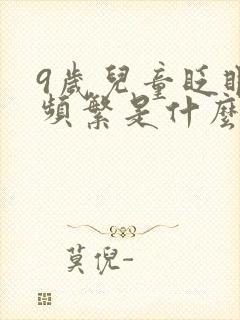 9歲兒童眨眼
頻繁是什麼
莫倪-